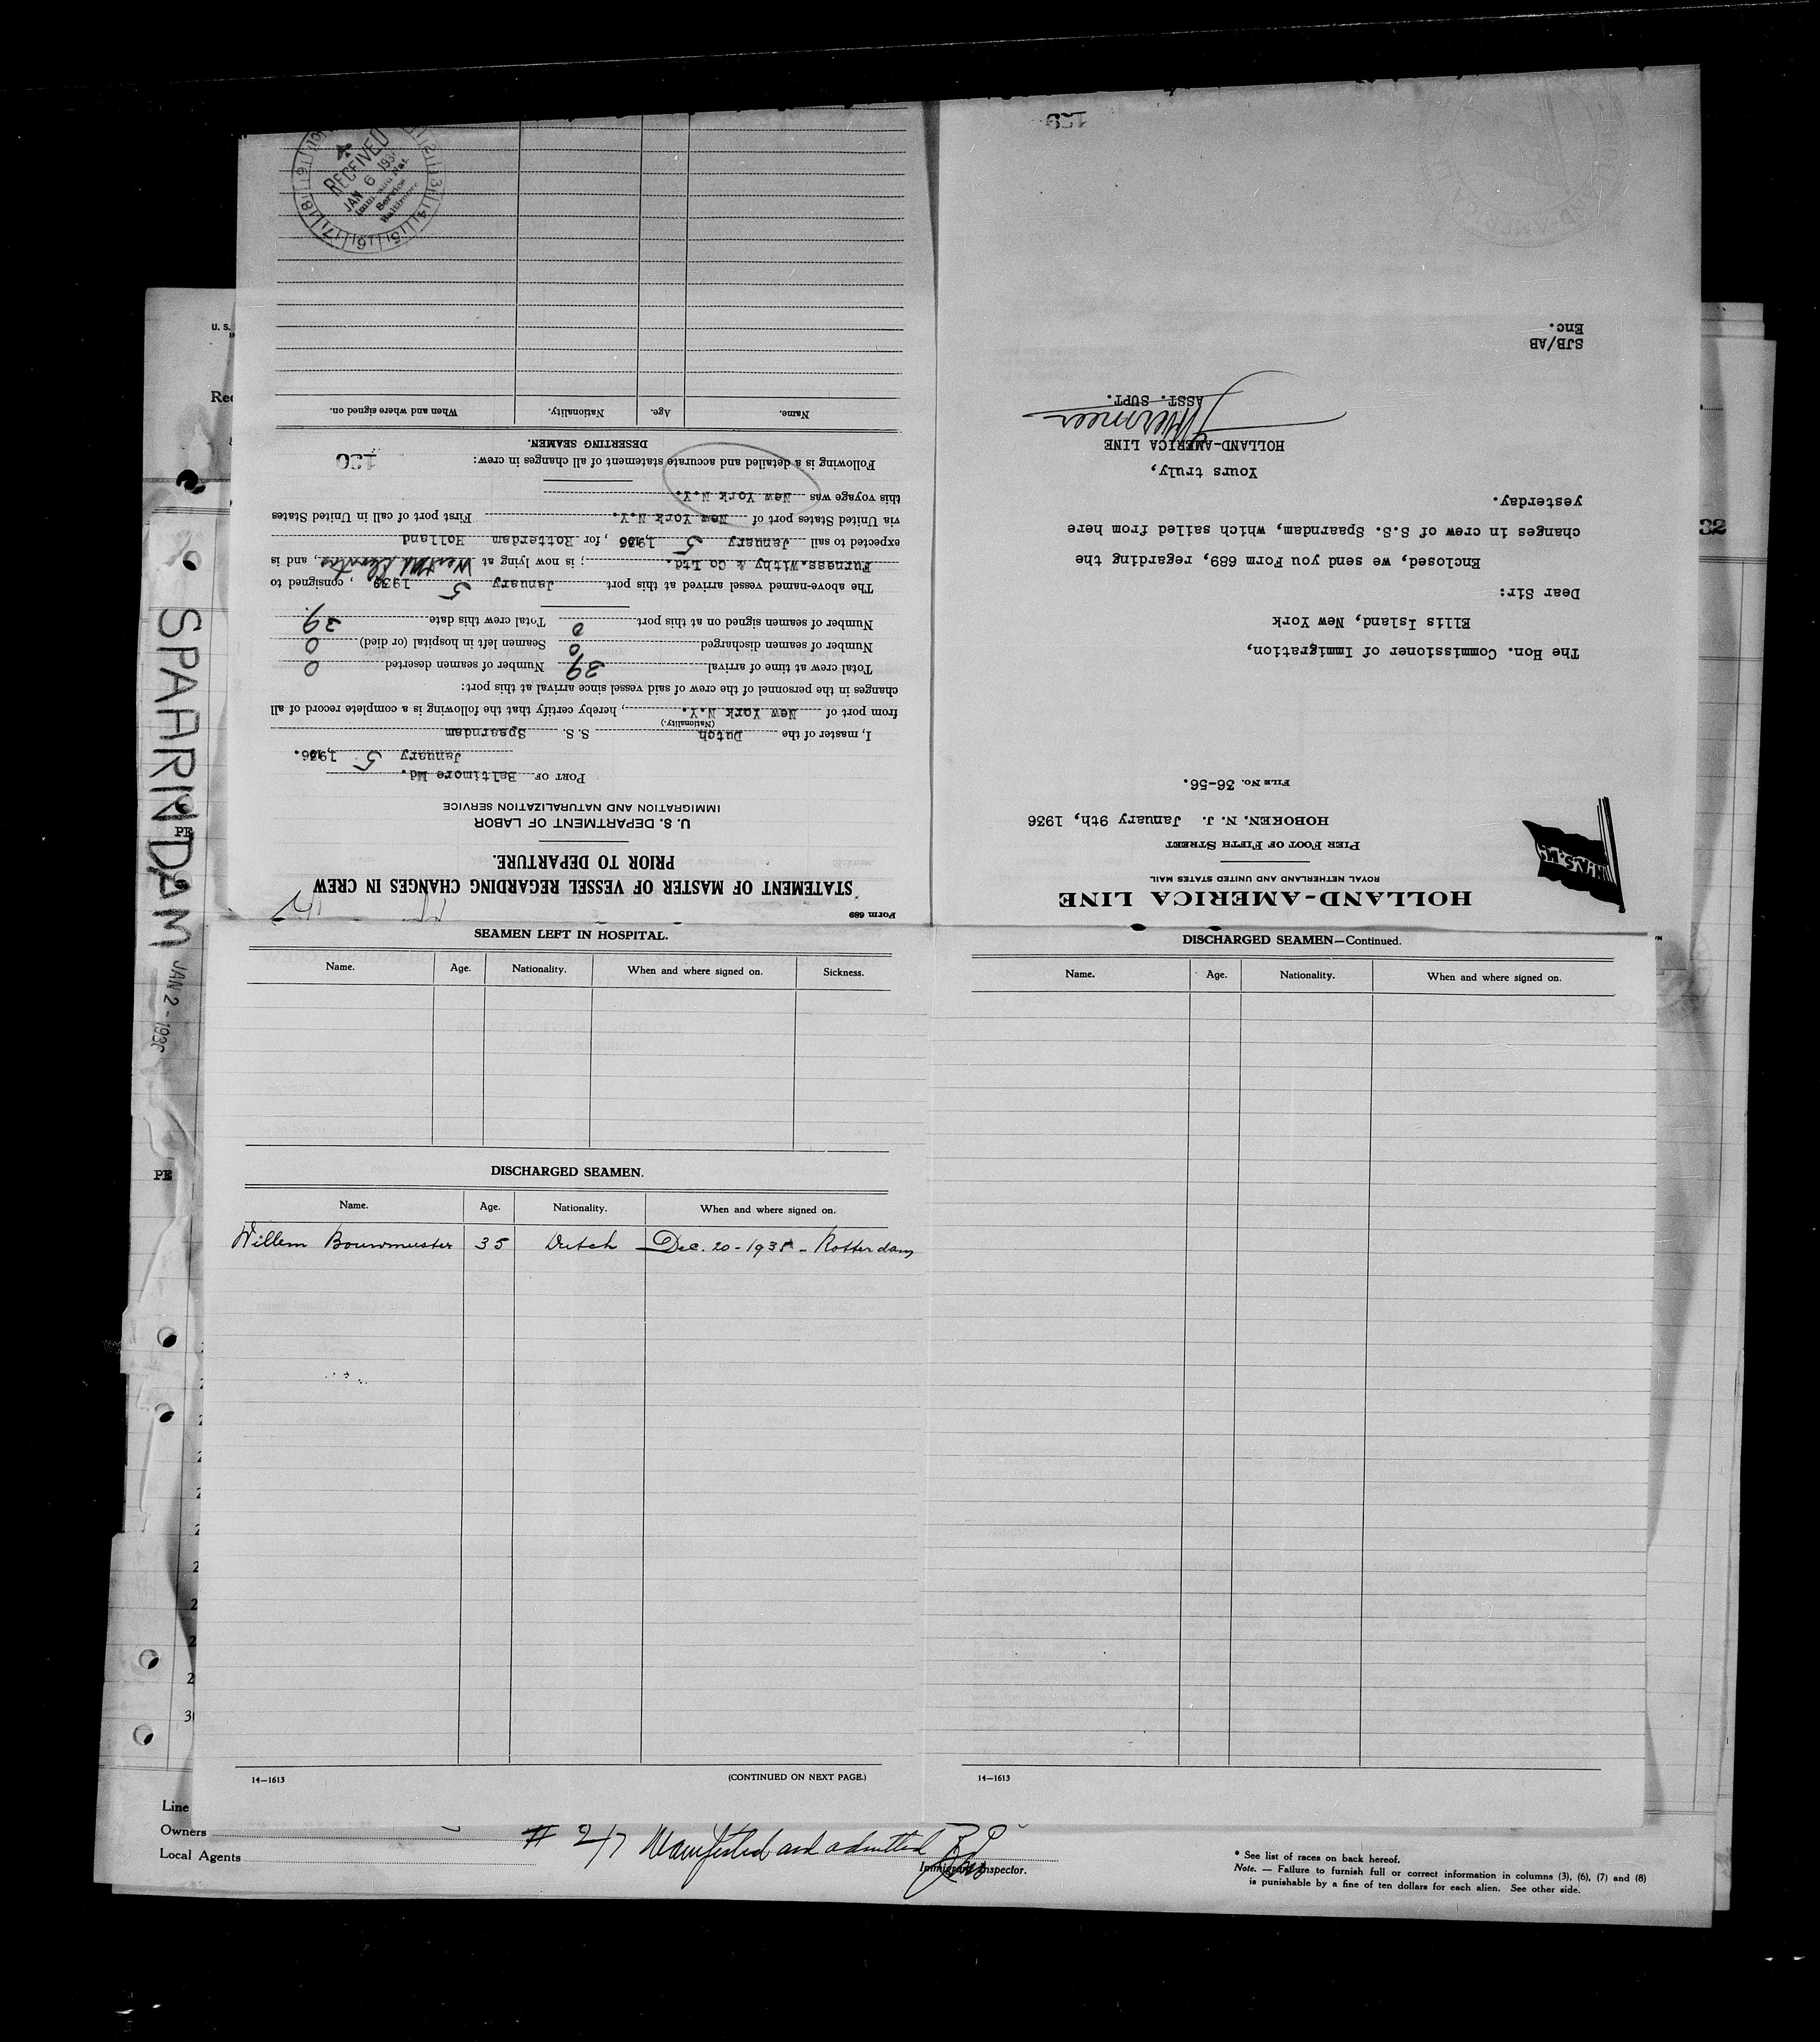 HOLLAND-AMERICA LINE
ROYAL NETHERLAND AND UNITED STATES MAIL
PIER FOOT OF FIFTH STREET
HOBOKEN. N. J. January 9th, 1936
FILE No. 36-56.
The Hon. Commissioner of Immigration,
Ellis Island, New York
Dear Sir:
Enclosed, we send you Form 689, regarding the
changes in crew of S.S. Spaarndam, which sailed from here
yesterday.
Yours truly,
HOLLAND-AMERICA LINE
ASST. SUPT.
SJB/AB
Enc.
129
N.A.S.M.
Form 689
STATEMENT OF MASTER OF VESSEL REGARDING CHANGES IN CREW
PRIOR TO DEPARTURE.
U. S. DEPARTMENT OF LABOR
IMMIGRATION AND NATURALIZATION SERVICE
PORT OF Baltimore Md.
January 5, 1936.
I, master of the Dutch S. S. Spaarndam
(Nationality.)
from port of New York N.Y., hereby certify that the following is a complete record of all
changes in the personnel of the crew of said vessel since arrival at this port:
Total crew at time of arrival 39 Number of seamen deserted 0
Number of seamen discharged 0 Seamen left in hospital (or died) 0
Number of seamen signed on at this port 0 Total crew this date 39.
The above-named vessel arrived at this port January 5 193, consigned to
Furness.Withy & Co Ltd.; is now lying at, and is
expected to sail January 5, 1936, for Rotterdam Holland
via United States port of New York N.Y. First port of call in United States
this voyage was New York N.Y.
Following is a detailed and accurate statement of all changes in crew:
130
DESERTING SEAMEN.
Name. Age. Nationality. When and where signed on.
RECEIVED
JAN 6 193
Service
Baltimore
SPAARNDAM JAN 2 - 1936
SEAMEN LEFT IN HOSPITAL.
Name. Age. Nationality. When and where signed on. Sickness.
DISCHARGED SEAMEN.
Name. Age. Nationality. When and where signed on.
Willem Bouwmeester 35 Dutch Dec. 20 - 1935 - Rotterdam
14—1613 (CONTINUED ON NEXT PAGE.)
DISCHARGED SEAMEN—Continued.
Name. Age. Nationality. When and where signed on.
14—1613
32
U. S.
PE
PE
Line
Owners
Local Agents
# 247 Manifested and admitted
Immigrant Inspector.
* See list of races on back hereof.
Note. — Failure to furnish full or correct information in columns (3), (6), (7) and (8)
is punishable by a fine of ten dollars for each alien. See other side.